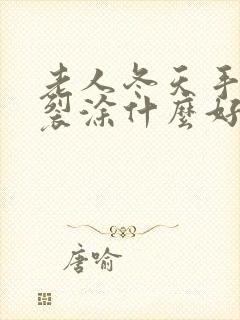 老人冬天手
裂涂什麼好
唐喻